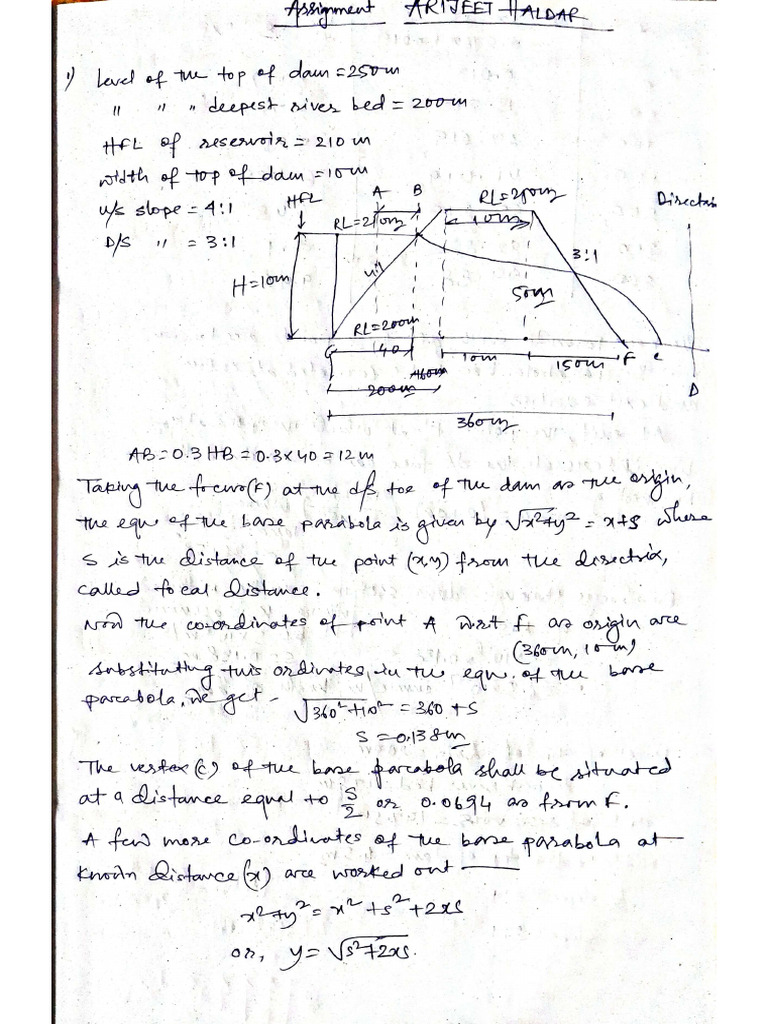 Assignment ARIJEET HALDAR
1) Level of the top of dam = 250m
" " " deepest river bed = 200m
HFL of reservoir = 210 m
width of top of dam = 10m
u/s slope = 4:1
D/S " = 3:1
HFL
A B
RL=210m
10m
Directrix
3:1
H=10m
50m
RL=200m
G 40 10m 150m F C
200m
D
360m
AB = 0.3 HB = 0.3 x 40 = 12 m
Taking the focus (F) at the d/s toe of the dam as the origin,
the eqn of the base parabola is given by √x²+y² = x+s where
S is the distance of the point (x,y) from the directrix,
called focal distance.
Now the co-ordinates of point A w.r.t F as origin are
(360m, 10m)
substituting this ordinates in the eqn. of the base
parabola, we get - √360²+10² = 360 + S
S = 0.138m
The vertex (c) of the base parabola shall be situated
at a distance equal to S/2 or 0.0694 as from F.
A few more co-ordinates of the base parabola at
known distance (x) are worked out
x²+y² = x² + s² + 2xs
or, y = √s²+2xs.